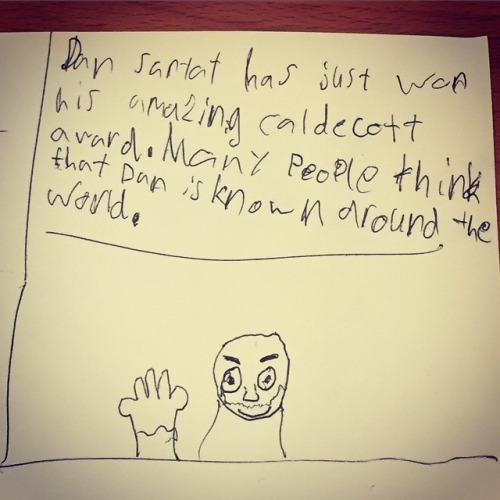 Dan santat has just won
his amazing caldecott
award. Many People think
that Dan is known around the
world.